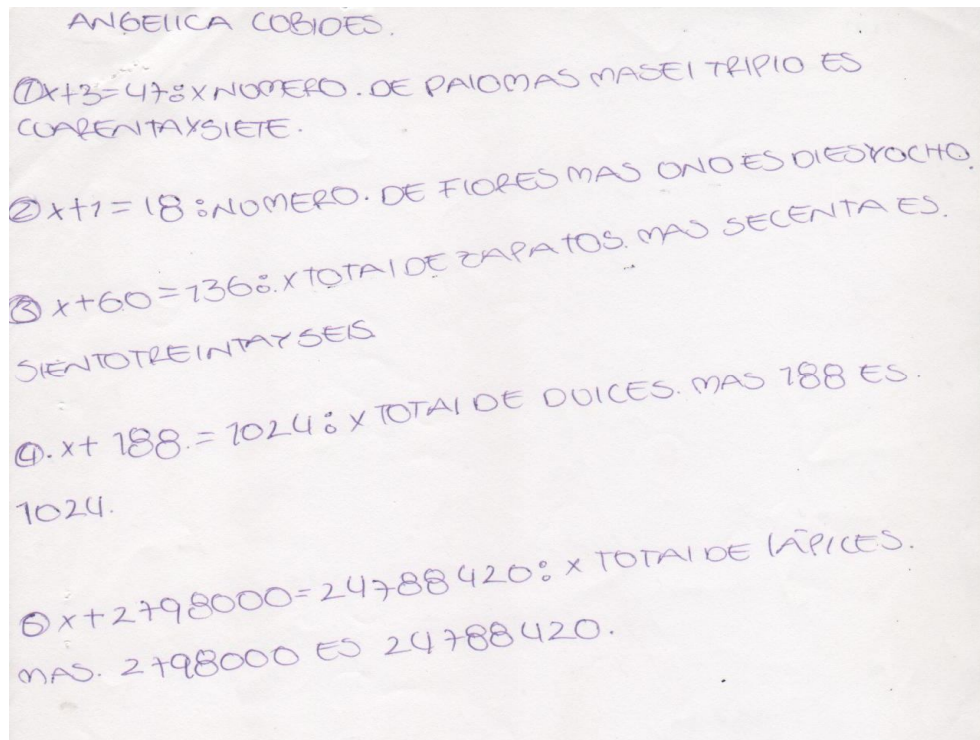 ANGELICA COBIDES.
① x+3=47: X NUMERO. DE PALOMAS MAS EL TRIPLO ES
CUARENTA Y SIETE.
② x+1=18: NUMERO. DE FLORES MAS UNO ES DIESYOCHO.
③ x+60=136: X TOTAL DE ZAPATOS. MAS SECENTA ES.
SIENTOTREINTAYSEIS
④. x+188.=1024: X TOTAL DE DULCES. MAS 188 ES.
1024.
⑤ x+2798000=24788420: X TOTAL DE LÁPICES.
MAS. 2798000 ES 24788420.